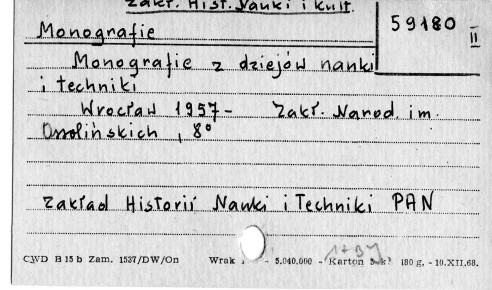 Zakł. Hist. Nauki i Kult.
59180 II
Monografie
Monografie z dziejów nauki
i techniki
Wrocław 1957- Zakł. Narod. im.
Ossolińskich, 8°
Zakład Historii Nauki i Techniki PAN
CWD B 15 b Zam. 1537/DW/On Wrak - 5.040.000 - Karton kl 180 g. - 10.XII.68.